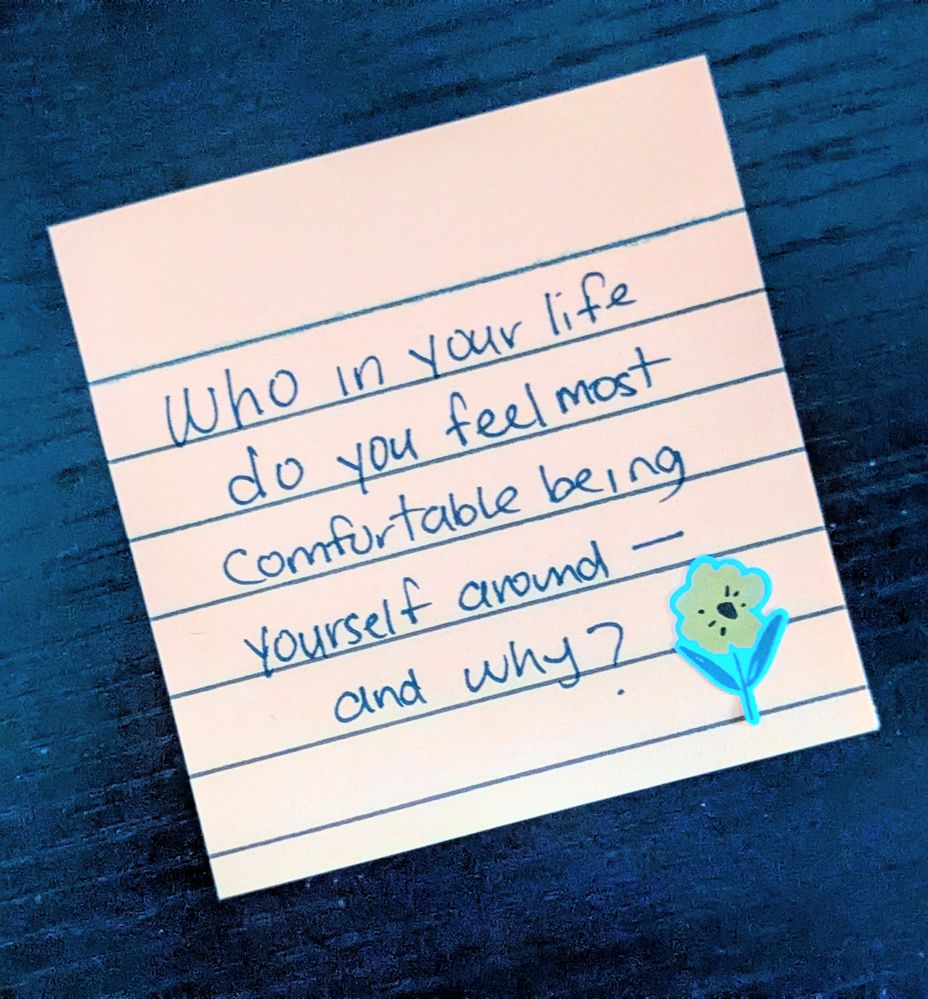 Who in your life
do you feel most
Comfortable being
yourself around —
and why?